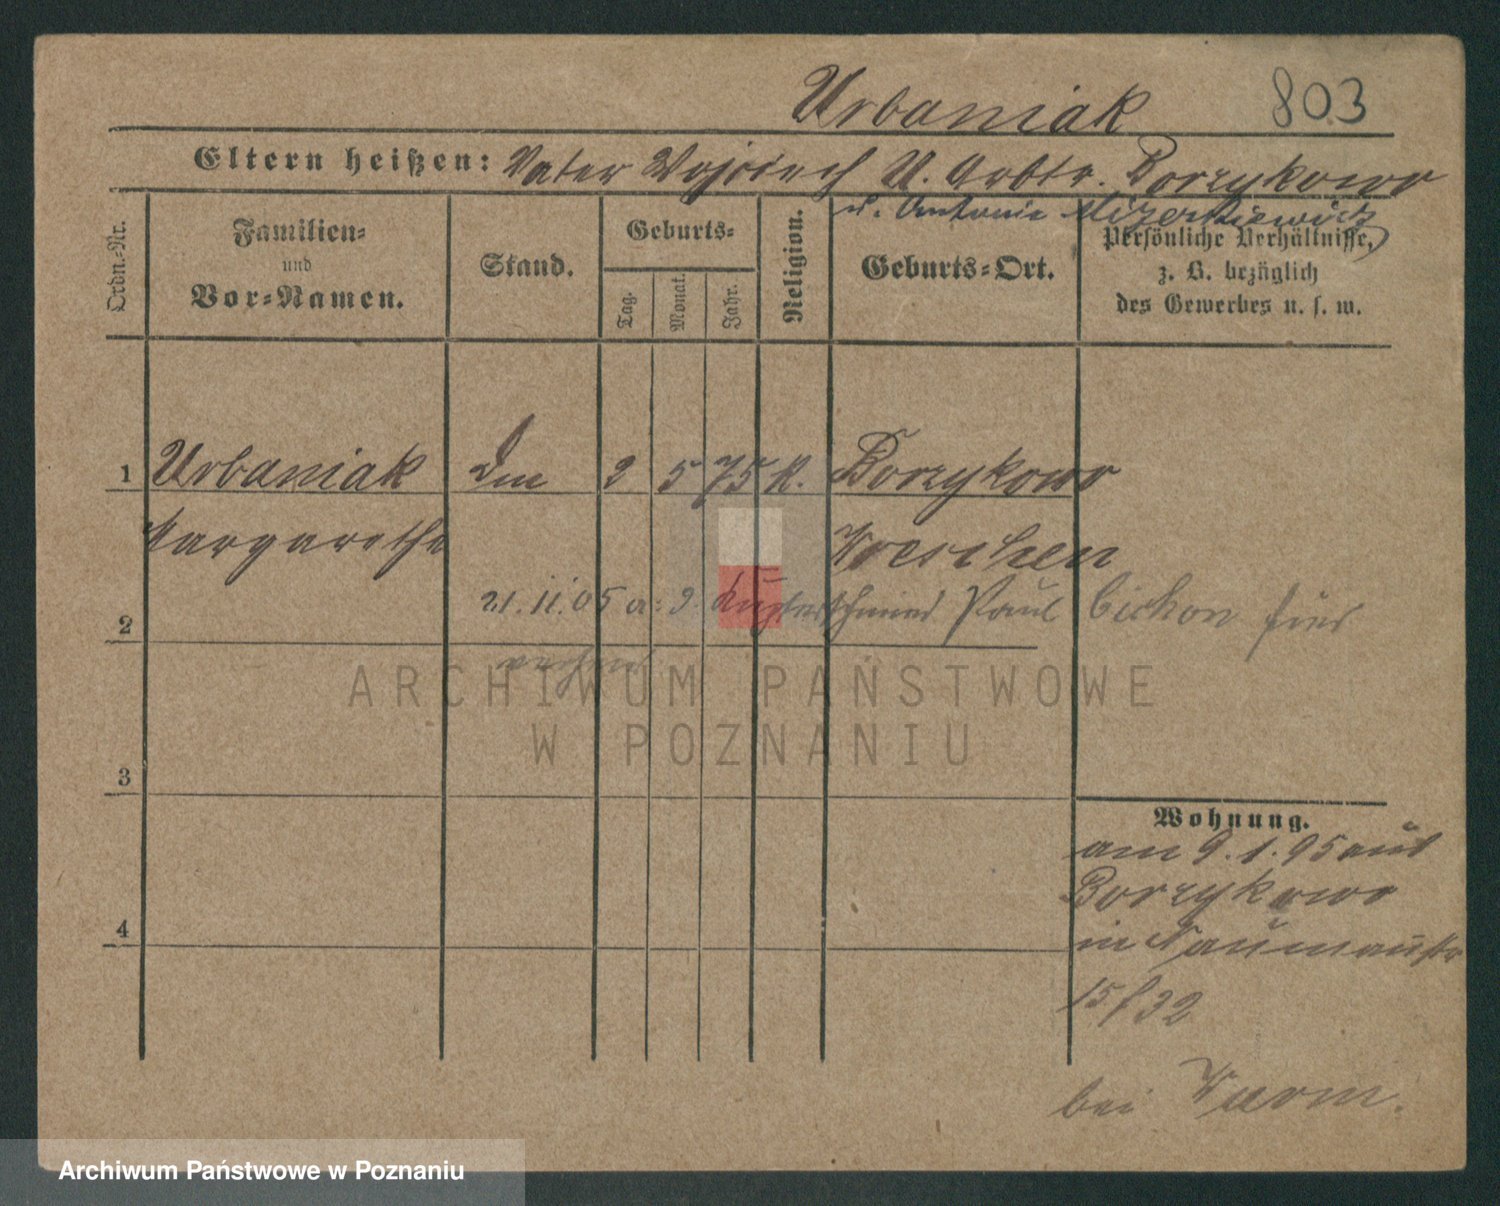 Urbaniak 803
Eltern heißen: Vater Wojciech U. Arbtr. Borzykowo
u. Antonie Mizerkiewicz
Ordn.-Nr.
Familien-
und
Vor-Namen.
Stand.
Geburts-
Tag.
Monat.
Jahr.
Religion.
Geburts-Ort.
Persönliche Verhältnisse,
z. B. bezüglich
des Gewerbes u. s. w.
1 Urbaniak 2 5 75 K. Borzykowo
Margarethe Wreschen
21.11.05 Kupferschmied Paul
2
ARCHIWUM PAŃSTWOWE
W POZNANIU
3
Wohnung.
am 9.1.95 aus
Borzykowo
4
in Naumannstr
15/32
bei Wurm.
Archiwum Państwowe w Poznaniu